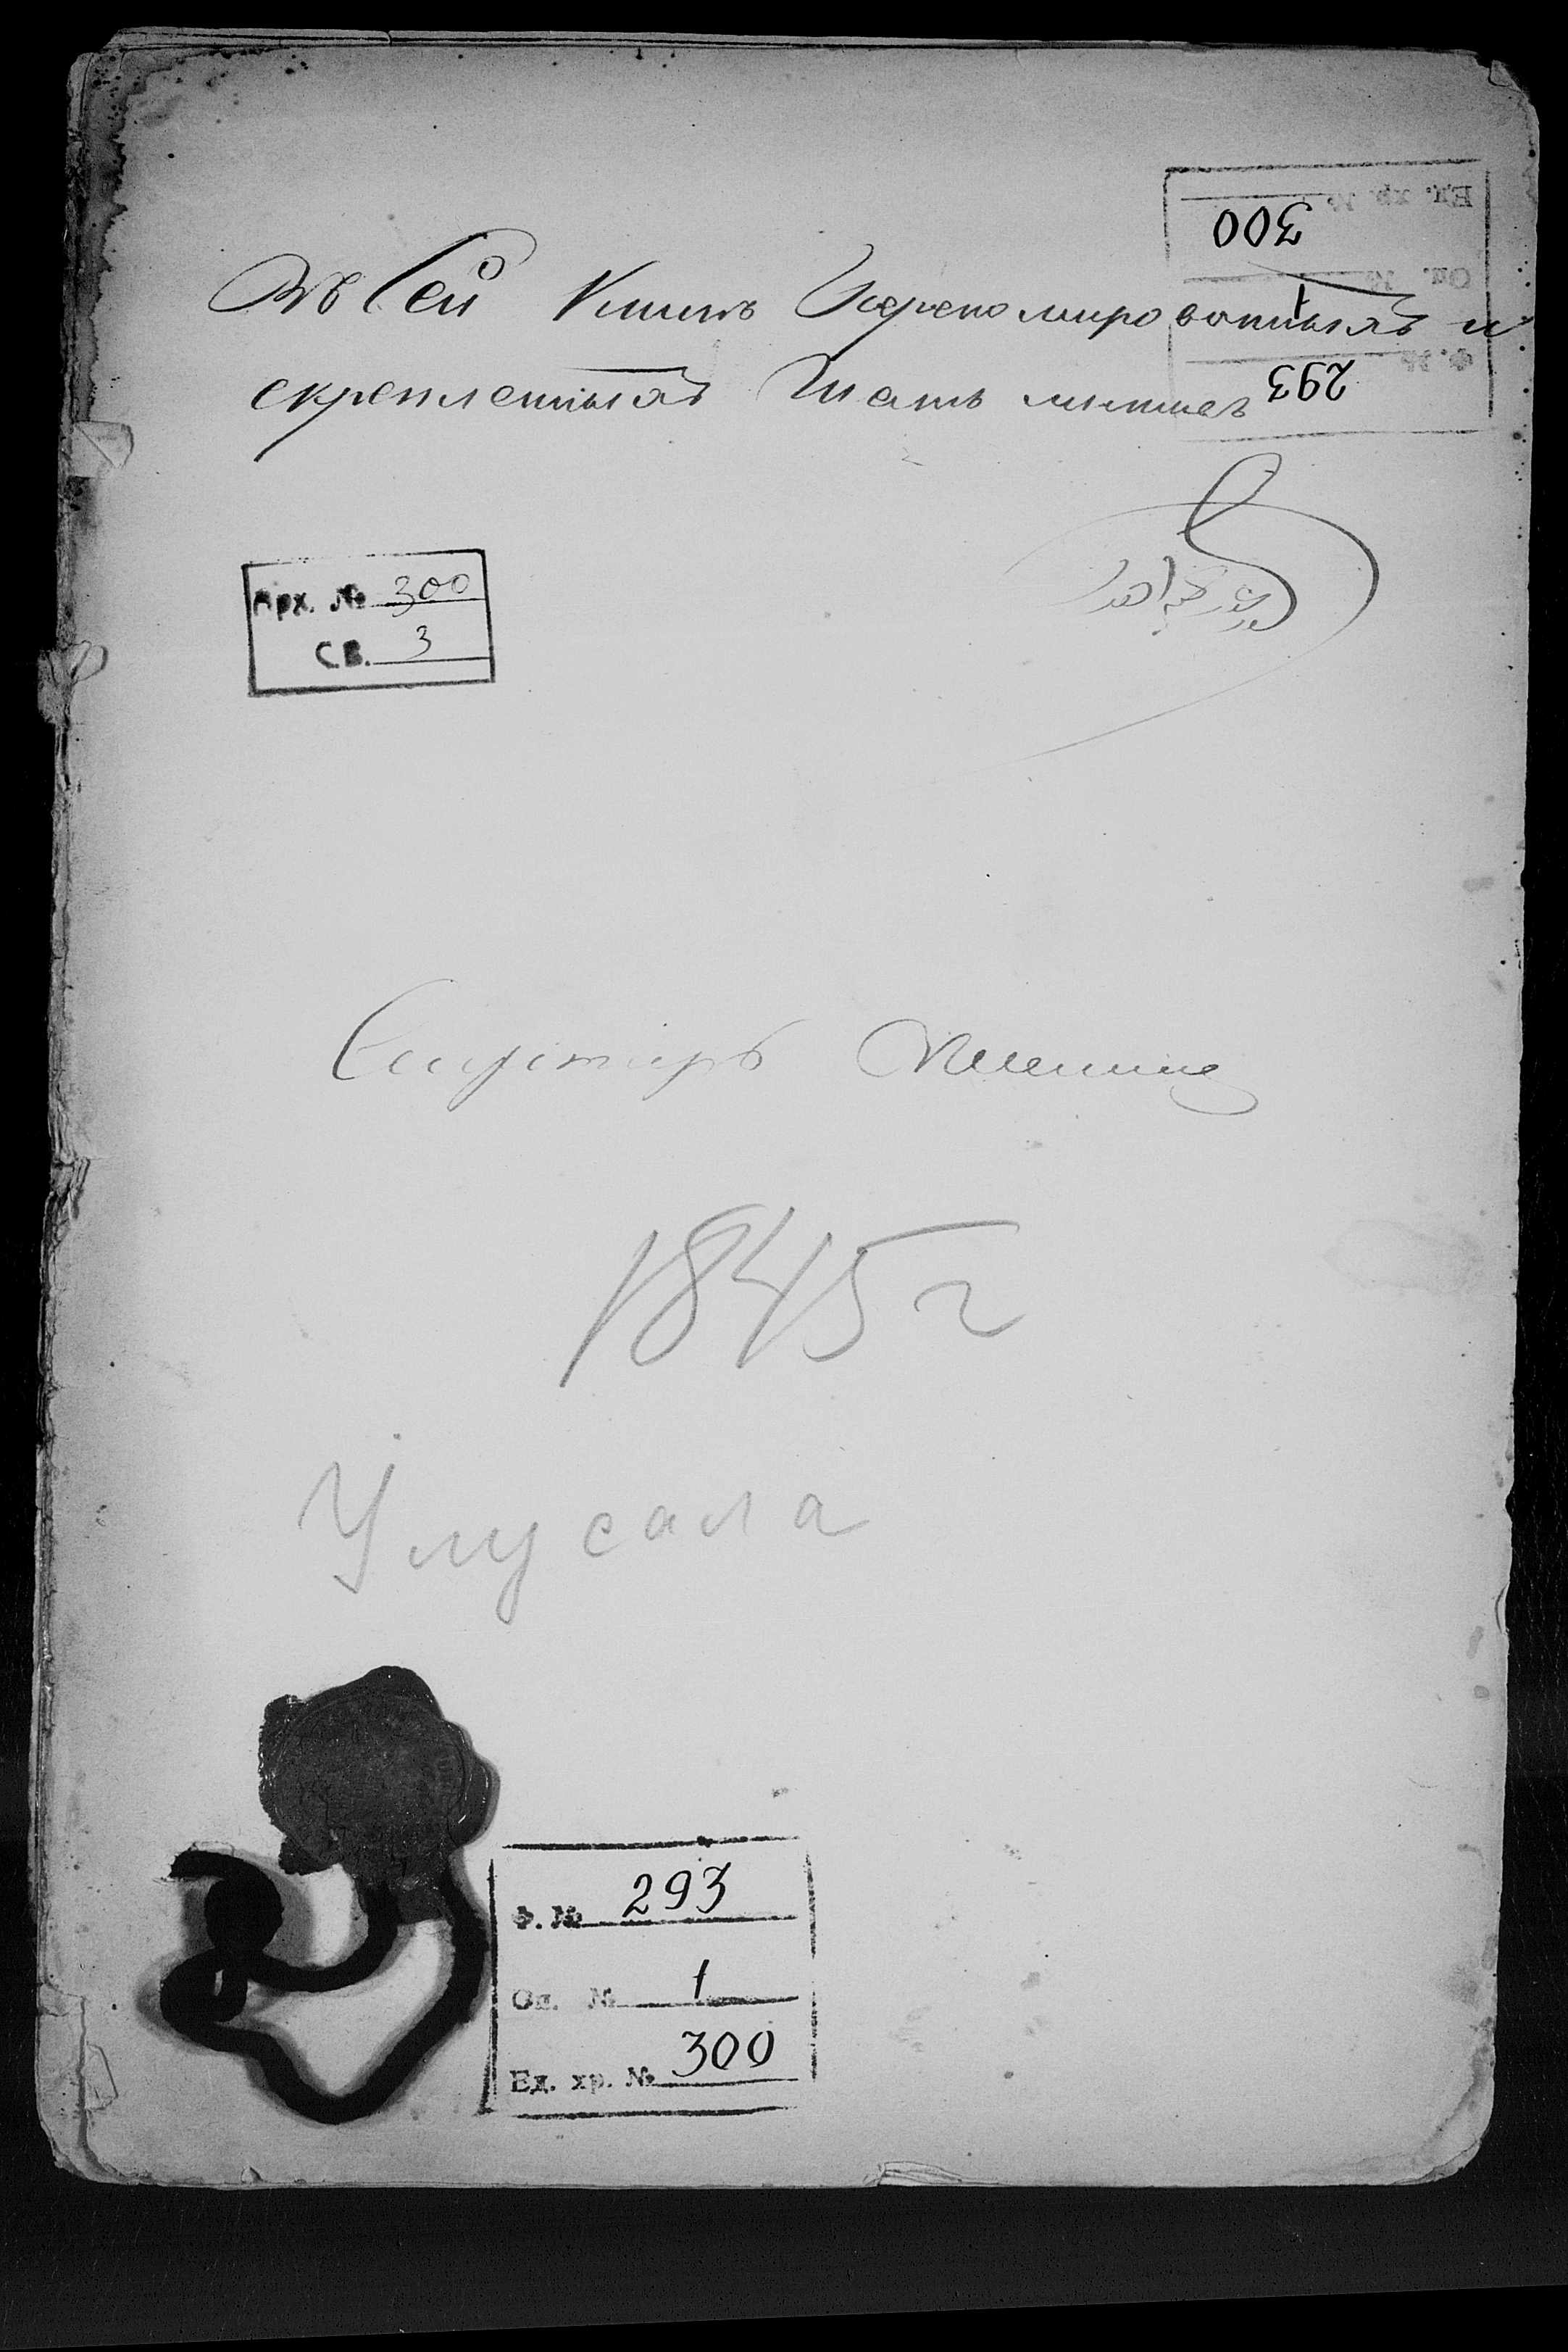 Въ Сей Книгѣ Переномированныхъ и
скрепленныхъ Шесть листов
Ед. хр. №
300
Оп. №
1
Ф. №
293
Арх. № 300
Св. 3
1845 г
Улусала
Ф. № 293
Оп. № 1
Ед. хр. № 300